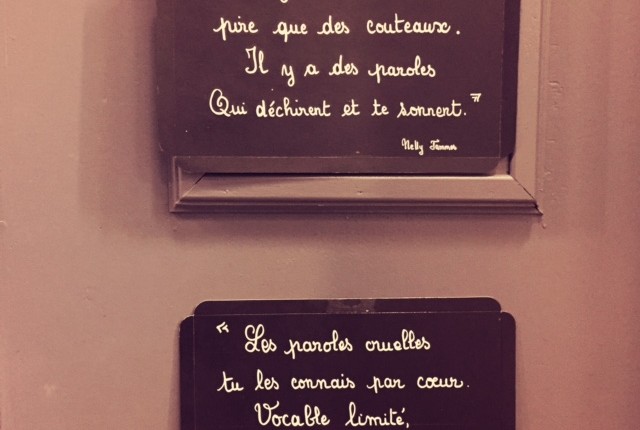 pire que des couteaux.
Il y a des paroles
Qui déchirent et te sonnent."
Nelly
"Les paroles cruelles
tu les connais par cœur.
Vocable limité,